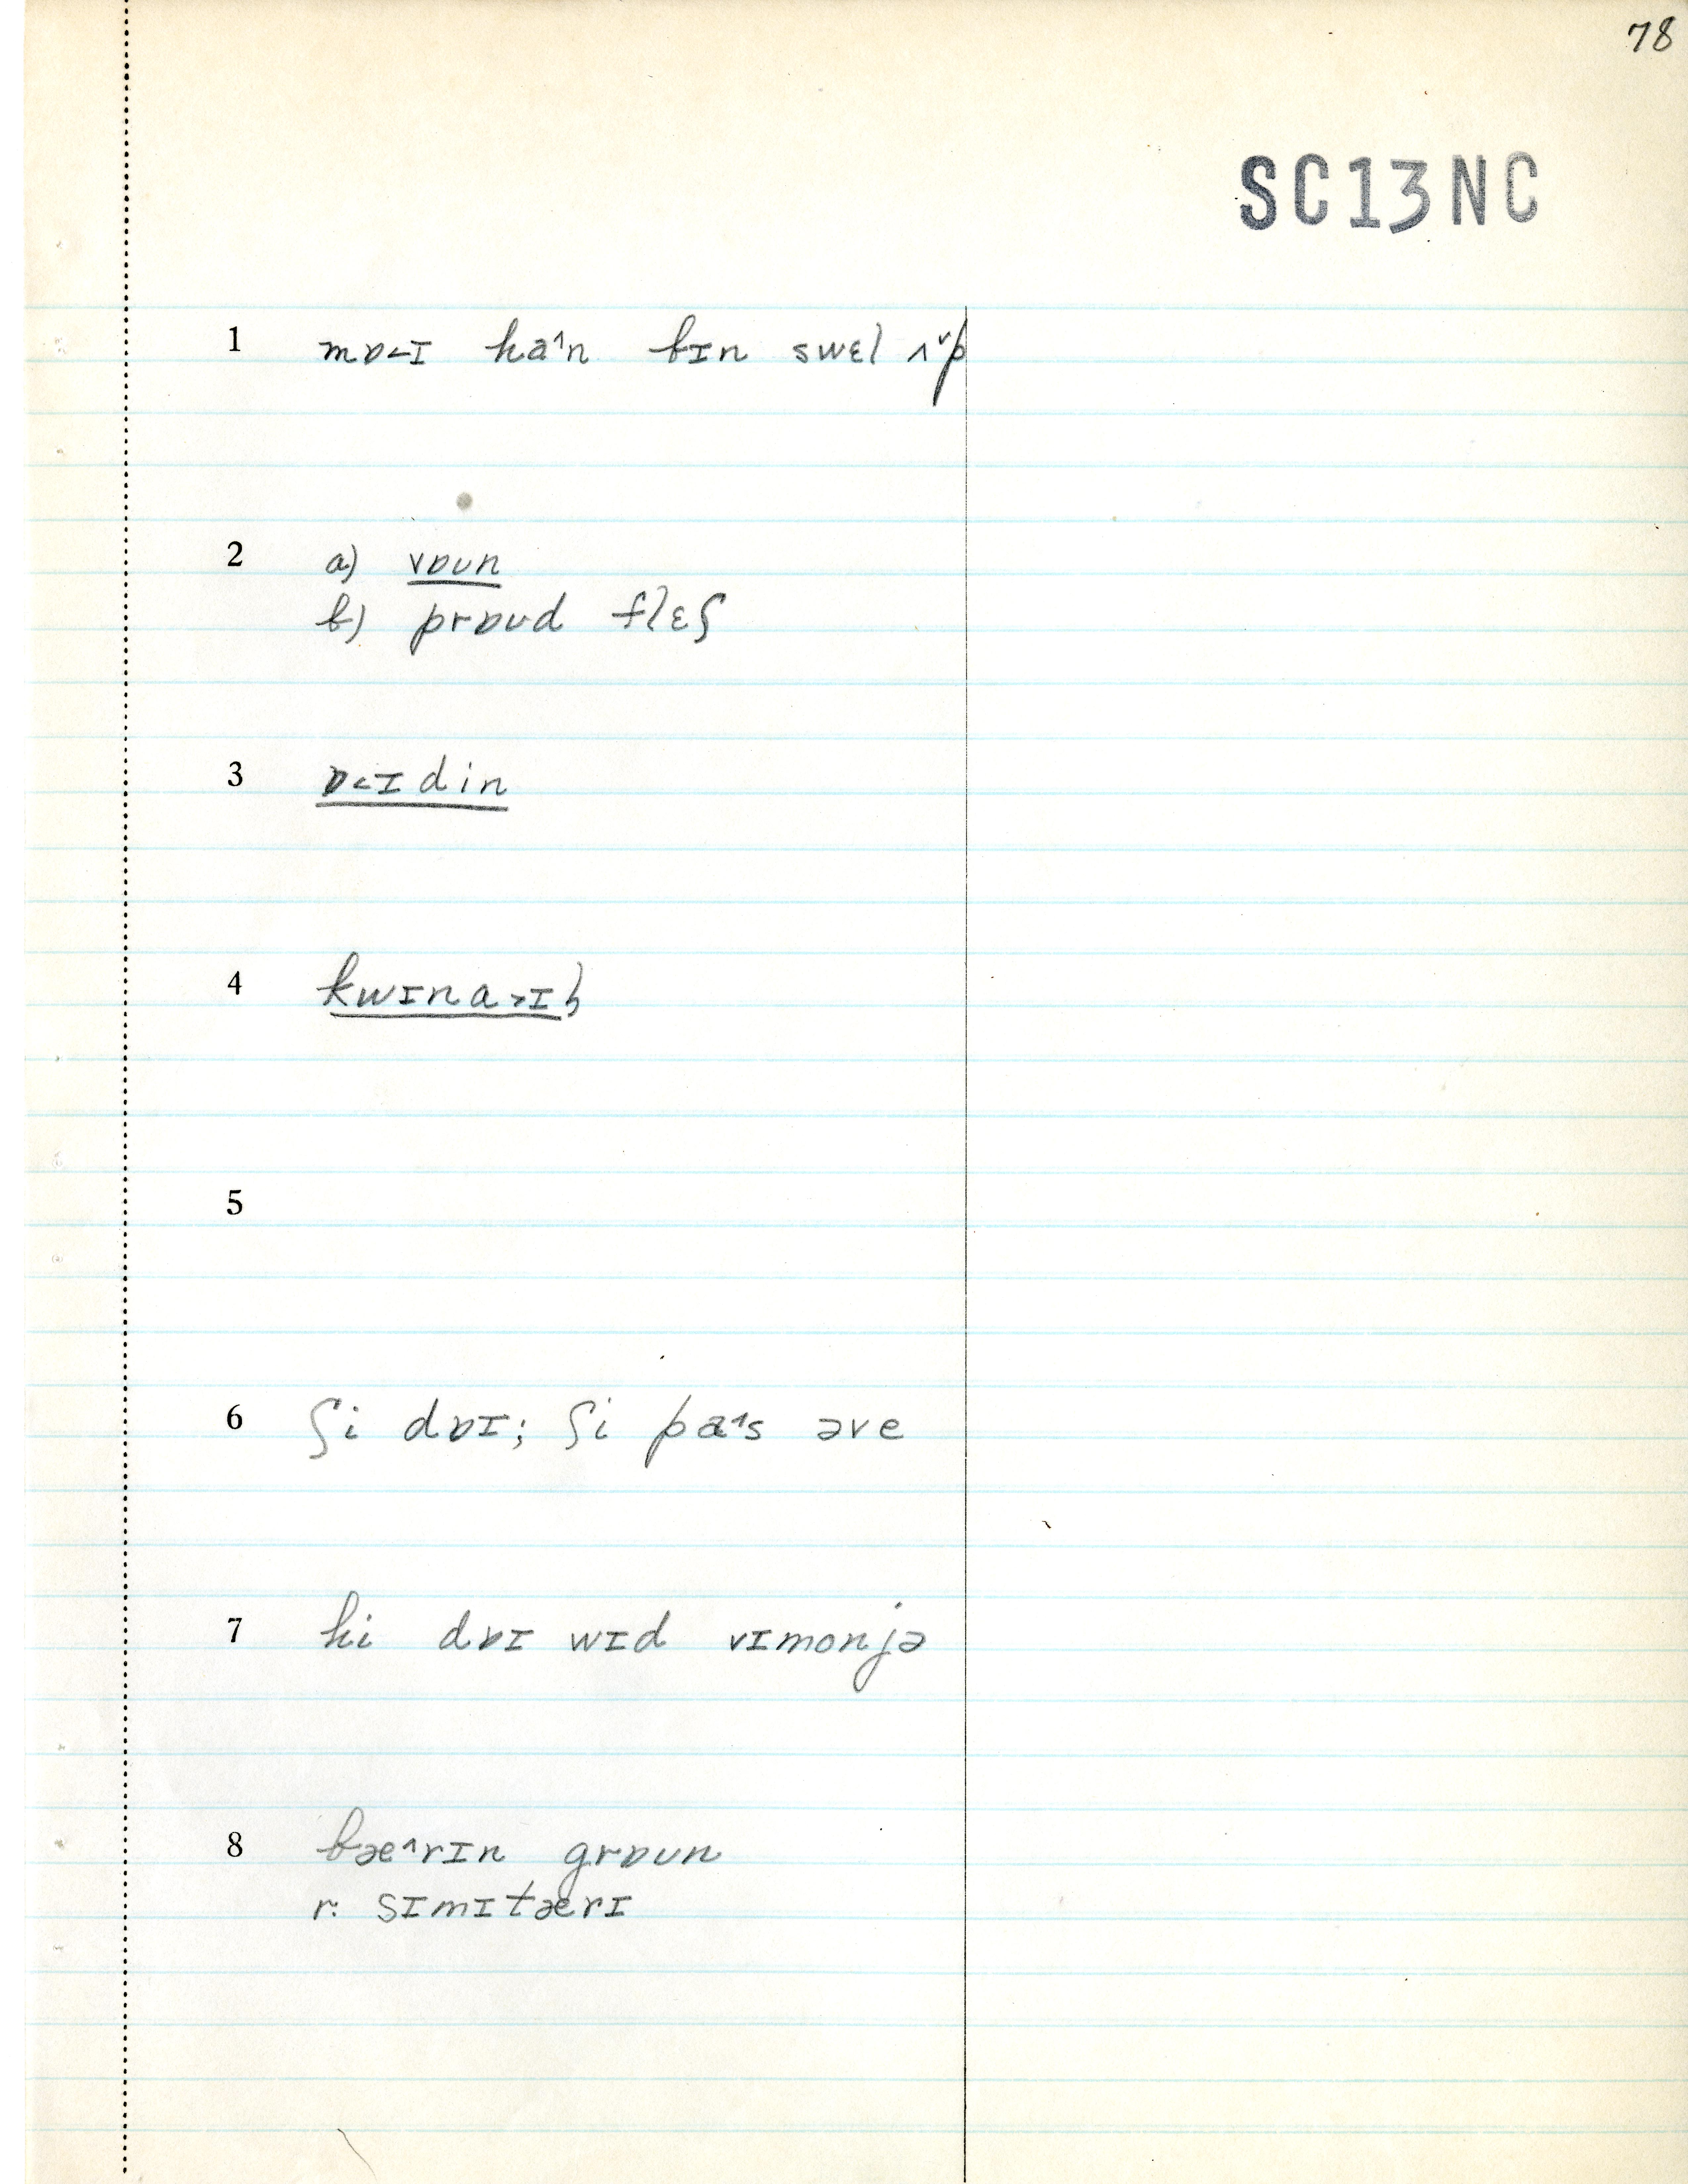 78
SC13NC
1 mɒ˂ɪ ha˄n bɪn swɛl ʌ˅p
2 a) vɒʊn
b) prɒʊd flɛʃ
3 ɒ˂ɪdin
4 kwɪna˃ɪ
5
6 ʃi dɒɪ; ʃi pa˄s əve
7 hi dɒɪ wɪd vɪmonjə
8 bæ˄rɪn grɒʊn
r: sɪmɪtæri